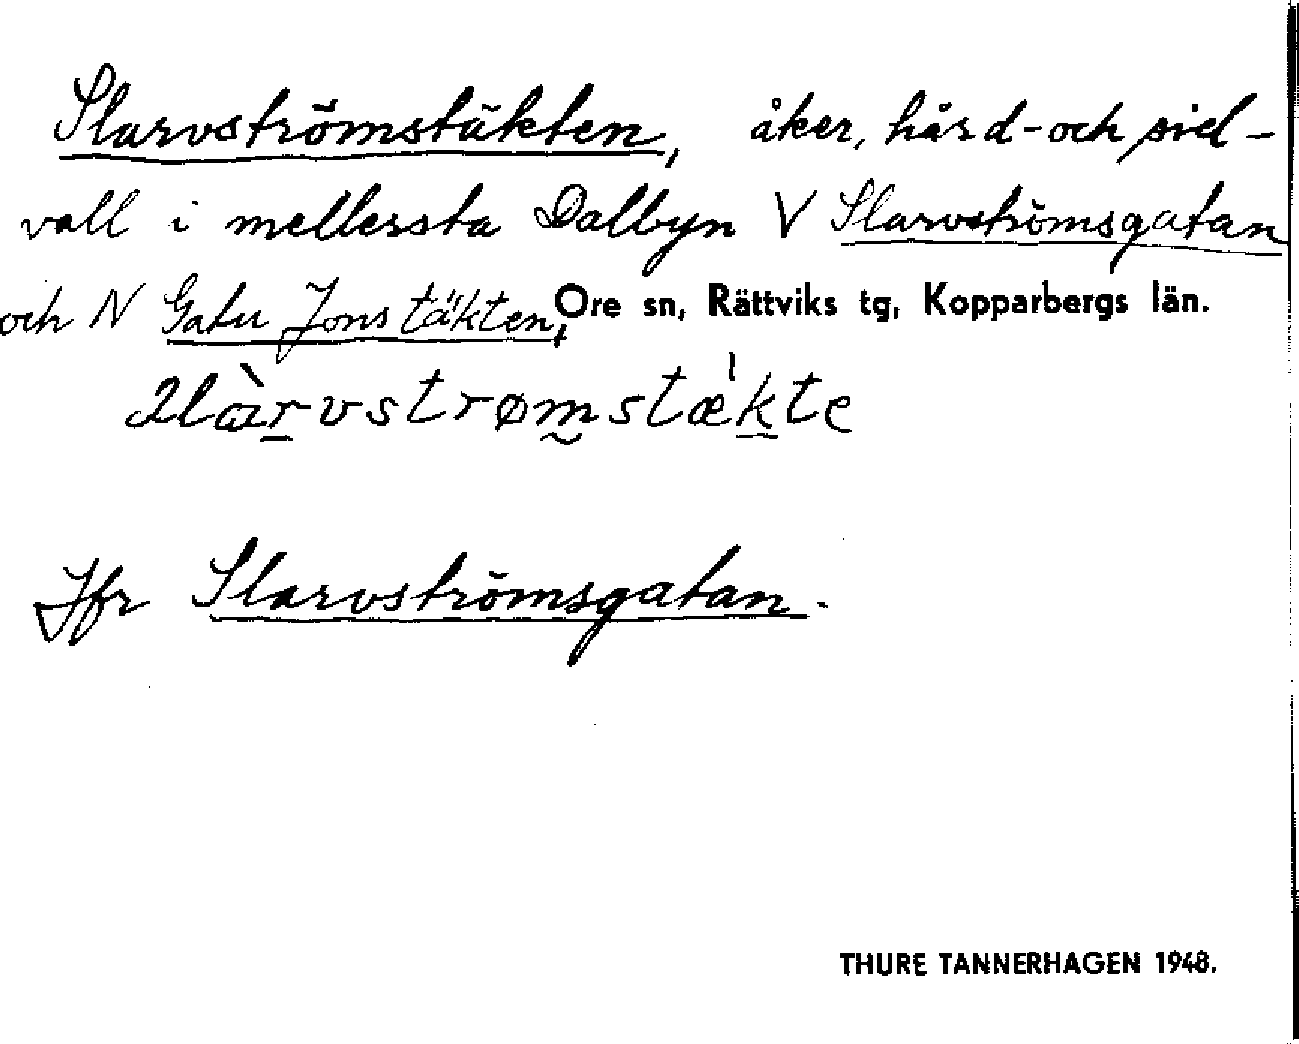 Slarvströmstäkten, åker, hård- och sid-
vall i mellersta Dalbyn V Slarvströmsgatan
och N Gatu Jons täkten, Ore sn, Rättviks tg, Kopparbergs län.
Jfr Slarvströmsgatan.
THURE TANNERHAGEN 1948.